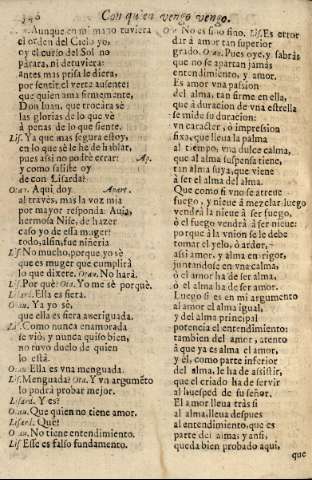 346
Con quien vengo vengo.
Aunque en mi mano tuviera
el orden del Cielo yo,
oy el curso del Sol no
pàrara, ni detuviera:
antes mas prisa le diera,
por sentir el verte ausente:
que quien ama firmemente,
Don Iuan, que trocàra sè
las glorias de lo que vè
à penas de lo que siente.
Lis. Ya que mas segura estoy,
en lo que sè le he de hablar,
pues assi no podrè errar: Ap.
y como saliste oy
de con Lisarda?
Otav. Aqui doy Apart.
al travès, mas la voz mia
por mayor responda: Avia,
hermosa Nise, de hazer
caso yo de essa muger?
todo, alfin, fue niñeria
Lis. No mucho, porque yo sè
que es muger que cumplirà
lo que dixere. Otav. No harà.
Lis. Por què? Ota. Yo me sè porquè.
Lisard. Ella es fiera.
Otav. Ya yo sè,
que ella es fiera averiguada.
Lis. Como nunca enamorada
se viò, y nunca quiso bien,
no tuvo duelo de quien
lo està.
Otav. Ella es vna menguada.
Lis. Menguada? Ota. Y vn argumẽto
lo podrà probar mejor.
Lisard. Y es?
Otav. Que quien no tiene amor.
Lisard. Què?
Otav. No tiene entendimiento.
Lis. Esse es falso fundamento.
Ota. No es sino fino. Lis. Es error
dar à amor tan superior
grado. Otav. Pues oye, y sabràs
que no se apartan jamàs
entendimiento, y amor.
Es amor vna passion
del alma, tan firme en ella,
que à duracion de vna estrella
se mide su duracion:
vn caracter, ò impression
fixa, que lleva la palma
al tiempo, vna dulce calma,
que al alma suspensa tiene,
tan alma suya, que viene
à ser el alma del alma.
Que como si vno se atreve
fuego, y nieve à mezclar luego
vendrà la nieve à ser fuego,
ò el fuego vendrà à ser nieve:
porque à la vnion se le debe
tomar el yelo, ò ardor,
assi amor, y alma en rigor,
juntandose en vna calma,
ò el amor ha de ser alma,
ò el alma ha de ser amor.
Luego si es en mi argumento
al amor el alma igual,
y del alma principal
potencia el entendimiento:
tambien del amor, atento
à que ya es alma el amor,
y èl, como parte inferior
del alma, le ha de assistir,
que el criado ha de servir
al huesped de su señor.
El amor lleva tràs si
al alma, lleva despues
al entendimiento, que es
parte del alma; y ansi,
queda bien probado aqui,
que